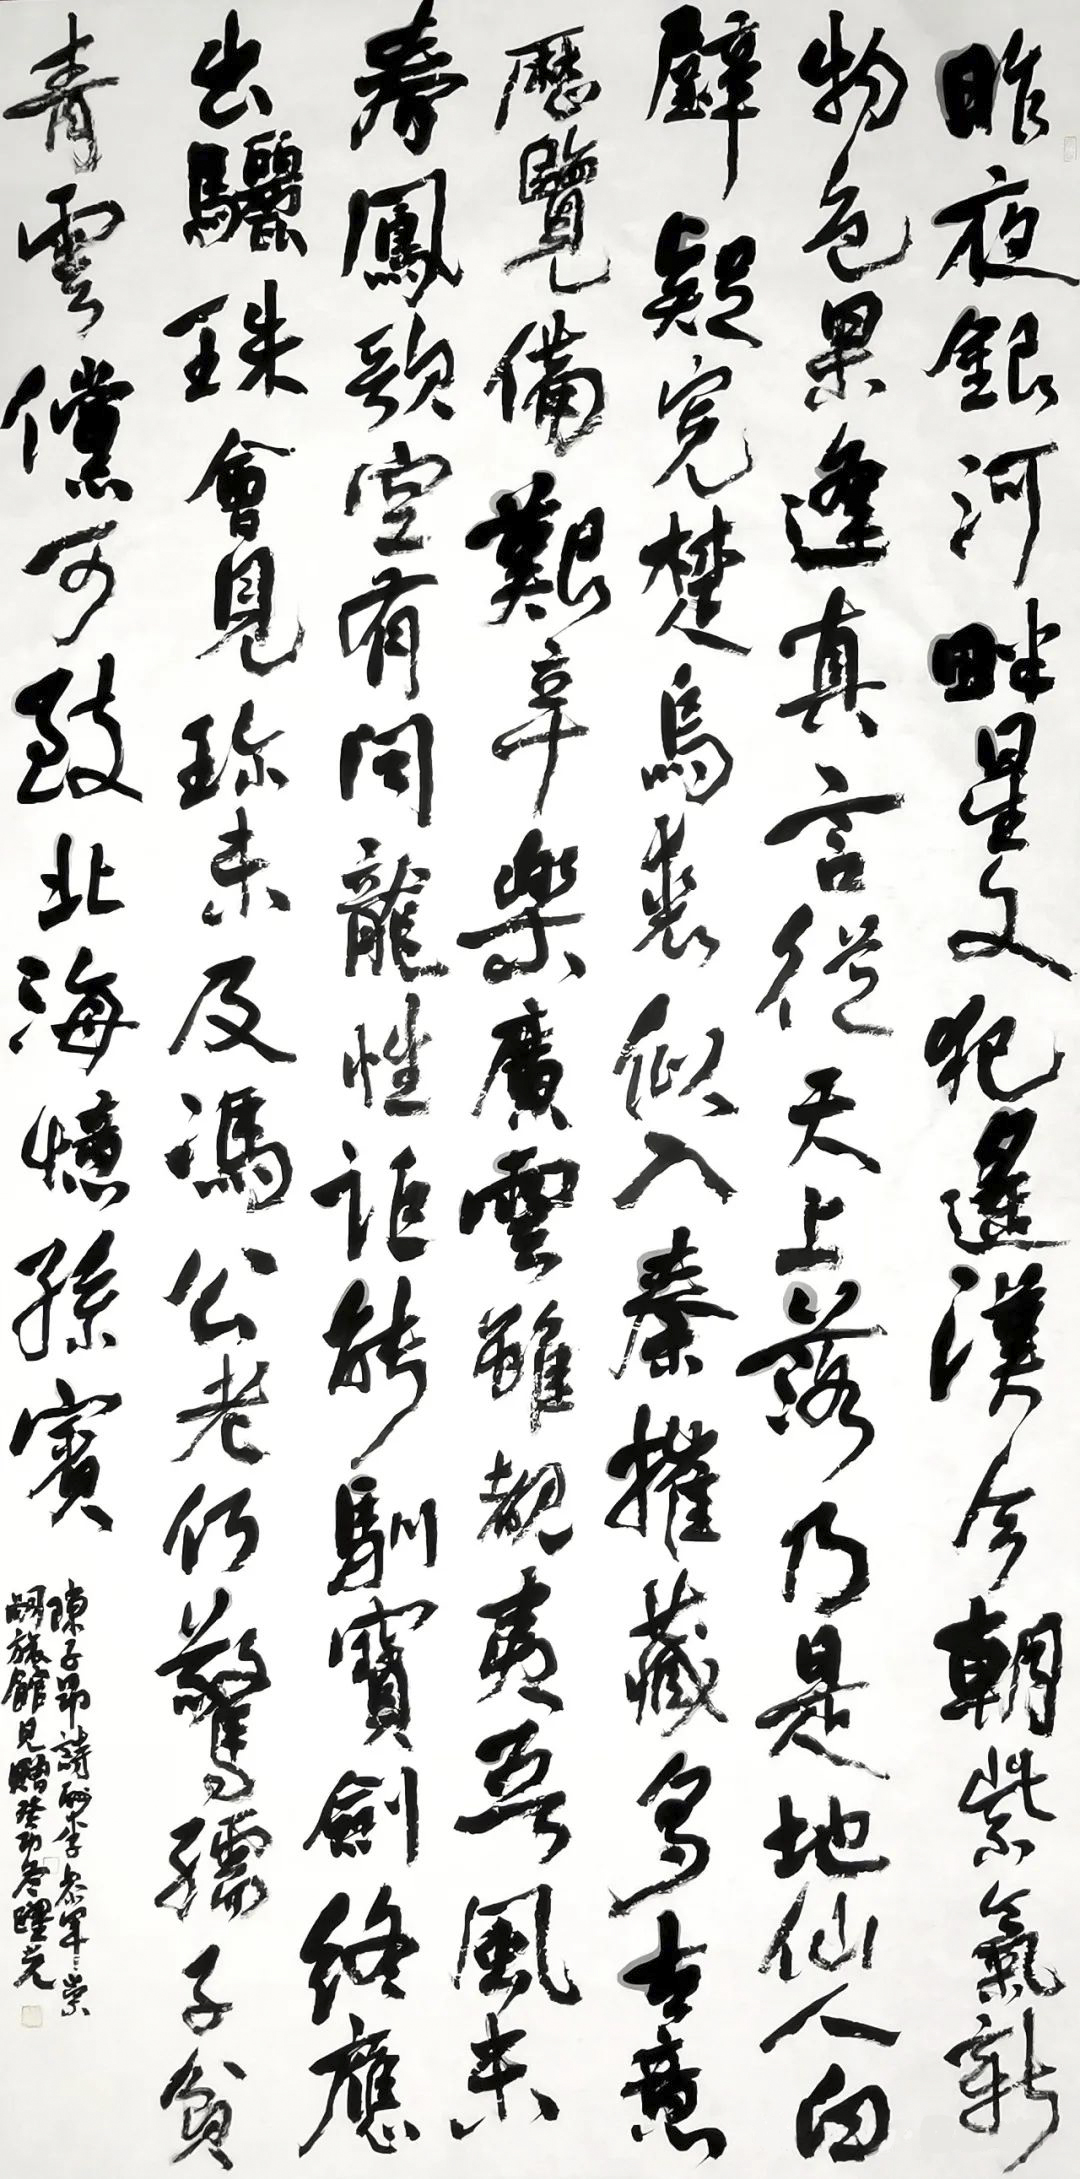 昨夜銀河畔星文犯遥漢今朝紫氣新
物色果逢真言從天上落乃是地仙人白
璧疑冤楚烏裘似入秦摧藏多古意
歷覽備艱辛樂廣雲雖覩夷吾風未
春鳳歌空有問龍性詎能馴寶劍終應
出驪珠會見珍未及馮公老何驚孺子貧
青雲儻可致北海憶孫賓
陳子昂詩酬李參軍崇
嗣旅館見贈癸卯冬光